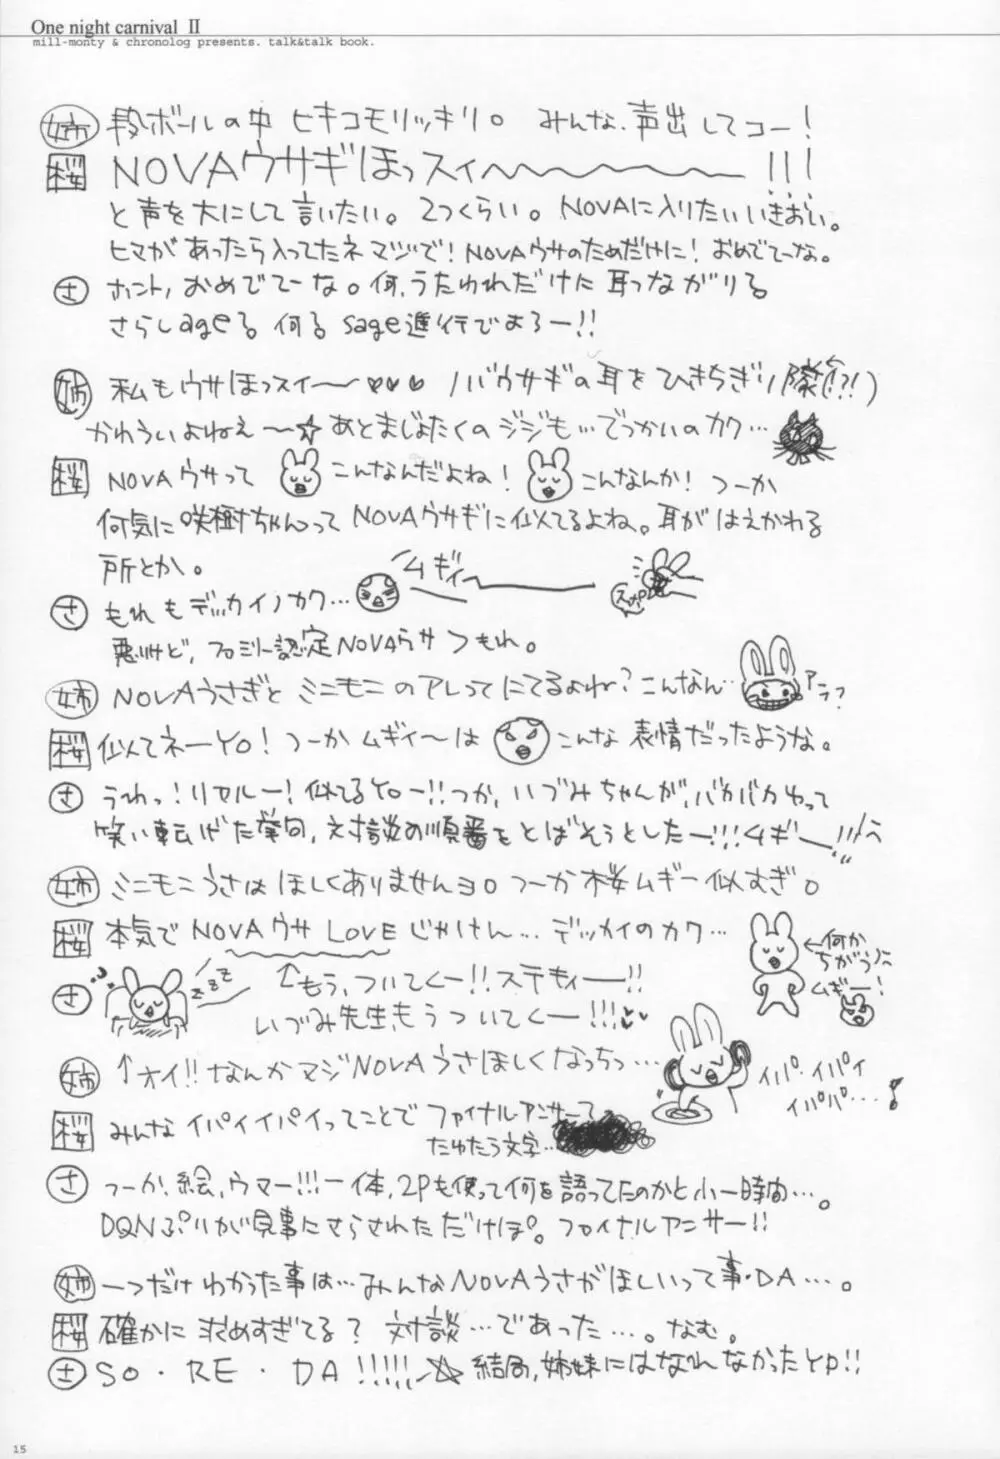 One night carnival Ⅱ
mill-monty & chronolog presents. talk&talk book.
姉 段ボールの中 ヒキコモリッキリ。 みんな、声出してコー!
桜 NOVAウサギほっスィ〜〜〜〜〜!!!
と声を大にして言いたい。2つくらい。NOVAに入りたいいきおい。
ヒマがあったら入ってたネ マヅで! NOVAウサのためだけに! おめでてーな。
さ ホント、おめでてーな。何、うたわれだけに耳つながりる
さらしageる 何る sage進行でよろー!!
姉 私もウサほっスィ〜〜♥♥♥ ノバウサギの耳をひきちぎり隊(!?!)
かわういよねえ〜☆ あとまじょたくのジジも…でっかいのカク…
桜 NOVAウサって こんなんだよね! こんなんか! つーか
何気に咲樹ちゃんって NOVAウサギに似てるよね。耳がはえかわる
所とか。
ムギィー
さ もれもデッカイノカク…
悪いけど、ファミリー認定NOVAウサ つもれ。
姉 NOVAうさぎと ミニモニのアレってにてるよね? こんなん…
アラ?
桜 似てネーYO! つーか ムギィ〜は こんな 表情だったような。
さ うわっ! リアルー! 似てるYOー!! つか、いづみちゃんが、バカバカわって
笑い転げた挙句、対談の順番をとばそうとしたー!!! ムギー!!!
姉 ミニモニうさは ほしくありませんヨ。つーか 桜ムギー似すぎ。
桜 本気で NOVAウサ LOVE じゃけん… デッカイのカク…
←何か
ちがう!
ムギー!
さ zzz ↑もう、ついてくー!! ステキィー!!
いづみ先生、もうついてくー!!!♥♥
姉 ↑オイ!! なんかマジNOVAうさほしくなっちっ…
イパ・イパイ
イパパ…!
桜 みんな イパイイパイってことで ファイナルアンサーで
たゆたう文字…
さ つーか、絵、ウマー!!! 一体、2Pも使って何を語ってたのかと小一時間…。
DQNぷりが見事にさらされただけぽ。ファイナルアンサー!!
姉 一つだけわかった事は…みんなNOVAうさがほしいって事・DA…。
桜 確かに 求めすぎてる? 対談…であった…。なむ。
さ SO・RE・DA!!!!!☆ 結局、姉妹にはなれんなかったYP!!
15